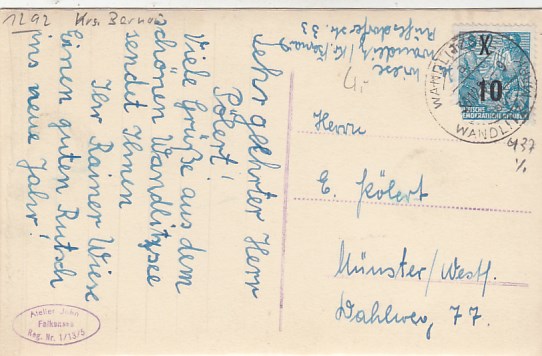 1292 Krs. Barnau
Sehr geehrter Herr
Pölert!
Viele Grüße aus dem
schönen Wandlitzsee
sendet Ihnen
Ihr Rainer Wiese
Einen guten Rutsch
ins neue Jahr!
Atelier John
Falkensee
Reg. Nr. 1/13/5
Wiese
Wandlitz/Kr. Bernau
33
4,-
X
10
DEUTSCHE
DEMOKRATISCHE REPUBLIK
WANDLITZSEE
WANDLITZ
437
Herrn
E. Pölert
Münster/Westf.
Dahlweg, 77.